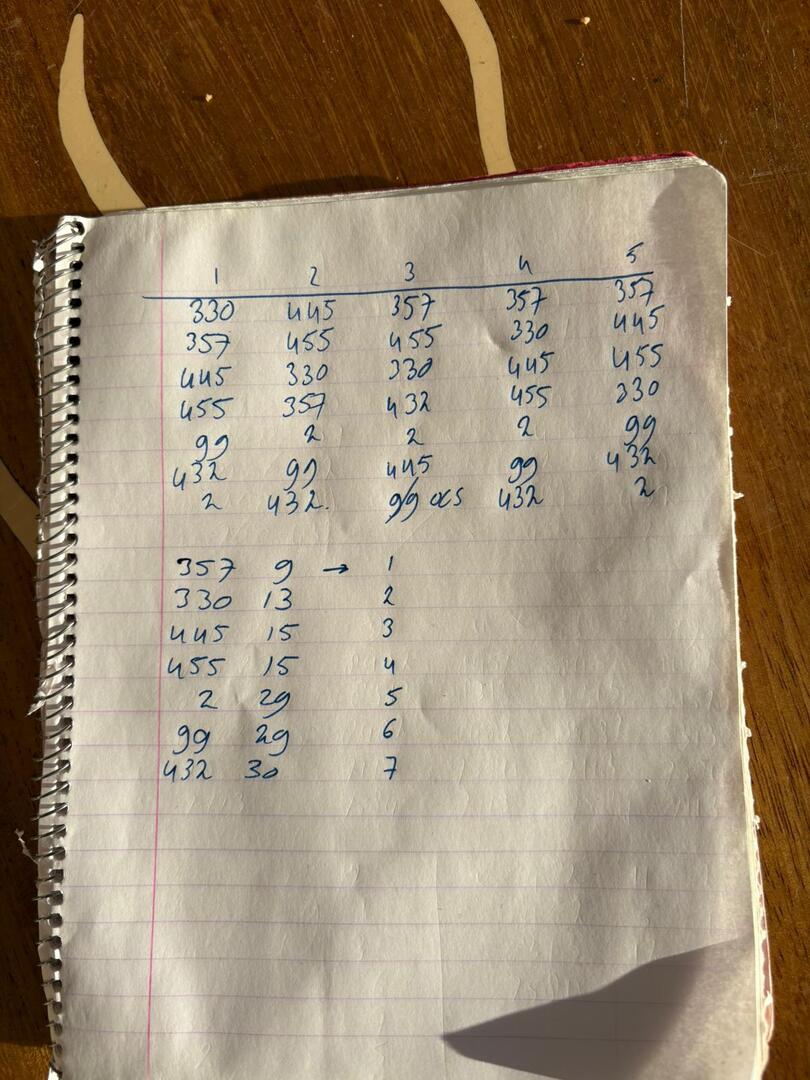 1 2 3 4 5
330 445 357 357 357
357 455 455 330 445
445 330 330 445 455
455 357 432 455 330
99 2 2 2 99
432 99 445 99 432
2 432. 99 ocs 432 2
357 9 → 1
330 13 2
445 15 3
455 15 4
2 29 5
99 29 6
432 30 7